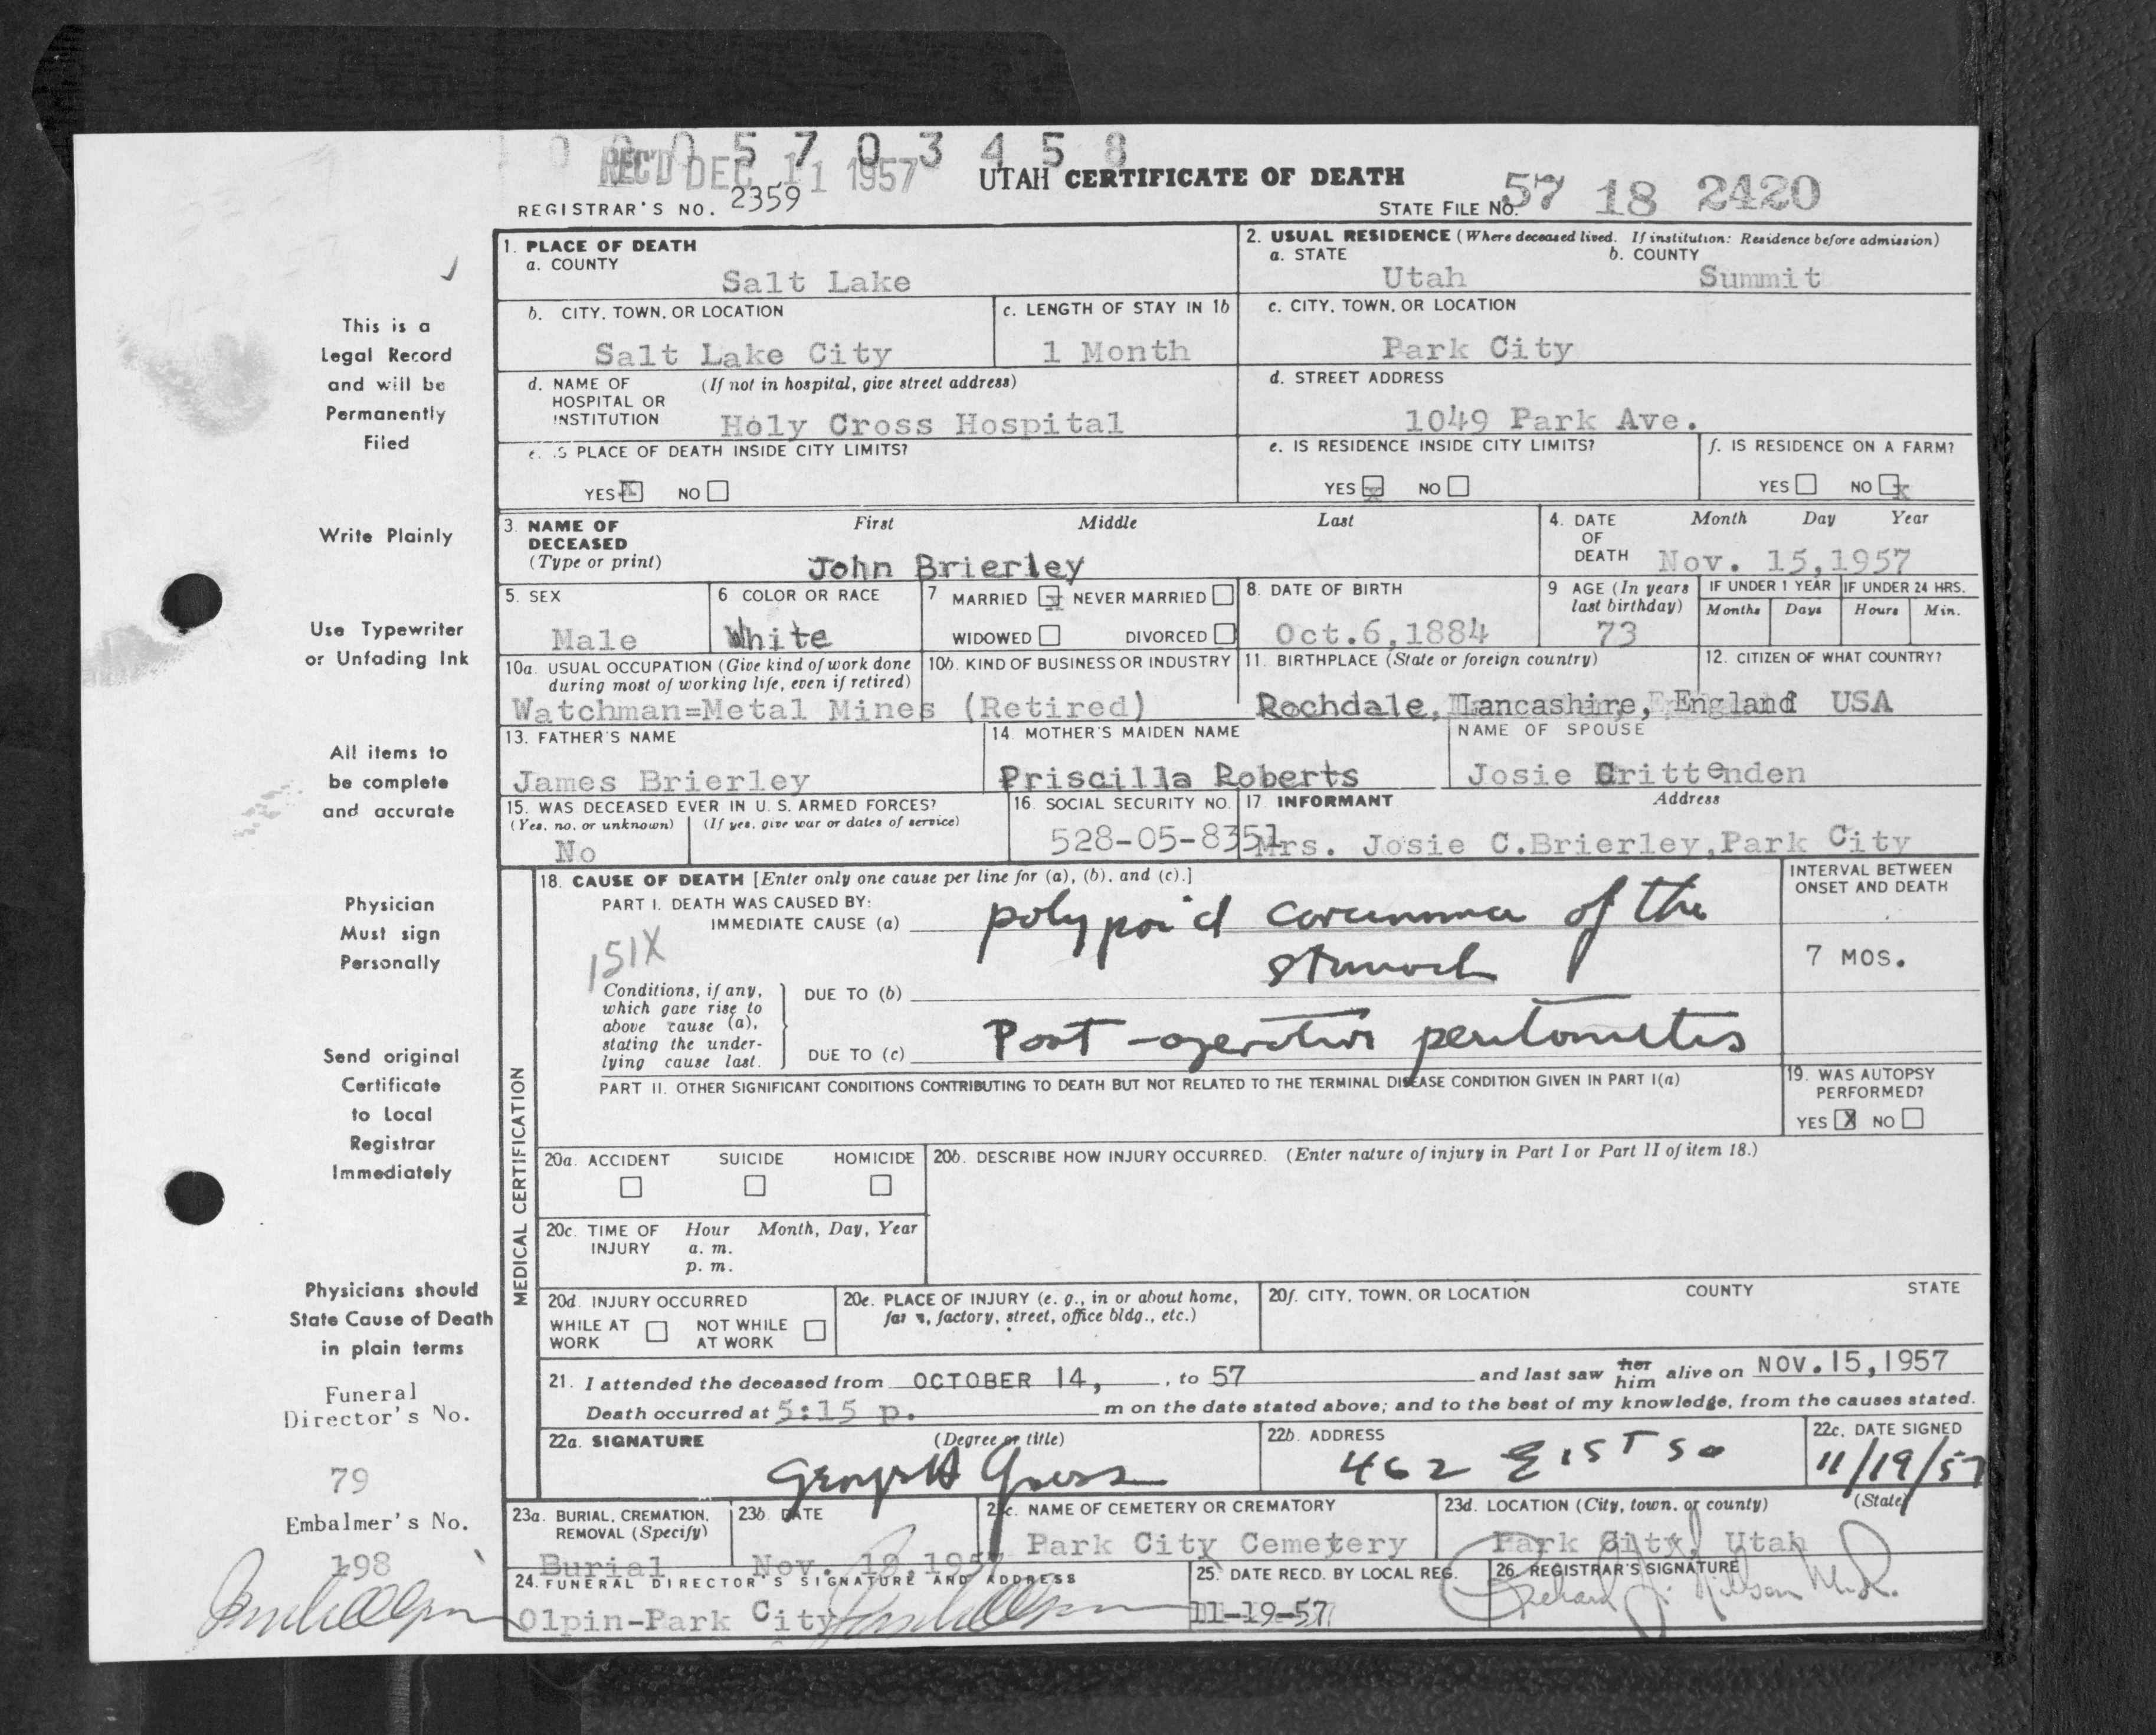 0 0 0 5 7 0 3 4 5 8
REC'D DEC 11 1957
UTAH CERTIFICATE OF DEATH
REGISTRAR'S NO. 2359
STATE FILE NO. 57 18 2420
1. PLACE OF DEATH
a. COUNTY
Salt Lake
2. USUAL RESIDENCE (Where deceased lived. If institution: Residence before admission)
a. STATE b. COUNTY
Utah Summit
b. CITY, TOWN, OR LOCATION
Salt Lake City
c. LENGTH OF STAY IN 1b
1 Month
c. CITY, TOWN, OR LOCATION
Park City
d. NAME OF (If not in hospital, give street address)
HOSPITAL OR
INSTITUTION Holy Cross Hospital
d. STREET ADDRESS
1049 Park Ave.
e. IS PLACE OF DEATH INSIDE CITY LIMITS?
YES X NO
e. IS RESIDENCE INSIDE CITY LIMITS?
YES x NO
f. IS RESIDENCE ON A FARM?
YES NO x
3. NAME OF First Middle Last
DECEASED
(Type or print) John Brierley
4. DATE Month Day Year
OF
DEATH Nov. 15,1957
5. SEX
Male
6 COLOR OR RACE
White
7 MARRIED x NEVER MARRIED
WIDOWED DIVORCED
8. DATE OF BIRTH
Oct.6,1884
9 AGE (In years
last birthday)
73
IF UNDER 1 YEAR IF UNDER 24 HRS.
Months Days Hours Min.
10a. USUAL OCCUPATION (Give kind of work done
during most of working life, even if retired)
10b. KIND OF BUSINESS OR INDUSTRY
Watchman=Metal Mines (Retired)
11. BIRTHPLACE (State or foreign country)
Rochdale, Lancashire, England
12. CITIZEN OF WHAT COUNTRY?
USA
13. FATHER'S NAME
James Brierley
14. MOTHER'S MAIDEN NAME
Priscilla Roberts
NAME OF SPOUSE
Josie Crittenden
15. WAS DECEASED EVER IN U. S. ARMED FORCES?
(Yes, no, or unknown) (If yes, give war or dates of service)
No
16. SOCIAL SECURITY NO.
528-05-8351
17. INFORMANT Address
Mrs. Josie C.Brierley,Park City
18. CAUSE OF DEATH [Enter only one cause per line for (a), (b), and (c).]
INTERVAL BETWEEN
ONSET AND DEATH
PART I. DEATH WAS CAUSED BY:
IMMEDIATE CAUSE (a) polypoid carcinoma of the
151X
stomach
7 MOS.
Conditions, if any,
which gave rise to
above cause (a),
stating the under-
lying cause last.
DUE TO (b)
DUE TO (c) Post-operative peritonitis
PART II. OTHER SIGNIFICANT CONDITIONS CONTRIBUTING TO DEATH BUT NOT RELATED TO THE TERMINAL DISEASE CONDITION GIVEN IN PART I(a)
19. WAS AUTOPSY
PERFORMED?
YES X NO
MEDICAL CERTIFICATION
20a. ACCIDENT SUICIDE HOMICIDE
20b. DESCRIBE HOW INJURY OCCURRED. (Enter nature of injury in Part I or Part II of item 18.)
20c. TIME OF Hour Month, Day, Year
INJURY a. m.
p. m.
20d. INJURY OCCURRED
WHILE AT NOT WHILE
WORK AT WORK
20e. PLACE OF INJURY (e. g., in or about home,
farm, factory, street, office bldg., etc.)
20f. CITY, TOWN, OR LOCATION COUNTY STATE
21. I attended the deceased from OCTOBER 14, , to 57 and last saw her him alive on NOV.15,1957
Death occurred at 5:15 p. m on the date stated above; and to the best of my knowledge, from the causes stated.
22a. SIGNATURE (Degree or title)
22b. ADDRESS
462 E 1ST So
22c. DATE SIGNED
11/19/57
23a. BURIAL, CREMATION,
REMOVAL (Specify)
Burial
23b. DATE
Nov. 18,1957
23c. NAME OF CEMETERY OR CREMATORY
Park City Cemetery
23d. LOCATION (City, town, or county) (State)
Park City, Utah
24. FUNERAL DIRECTOR'S SIGNATURE AND ADDRESS
Olpin-Park City
25. DATE RECD. BY LOCAL REG.
11-19-57
26. REGISTRAR'S SIGNATURE
This is a
Legal Record
and will be
Permanently
Filed
Write Plainly
Use Typewriter
or Unfading Ink
All items to
be complete
and accurate
Physician
Must sign
Personally
Send original
Certificate
to Local
Registrar
Immediately
Physicians should
State Cause of Death
in plain terms
Funeral
Director's No.
79
Embalmer's No.
198